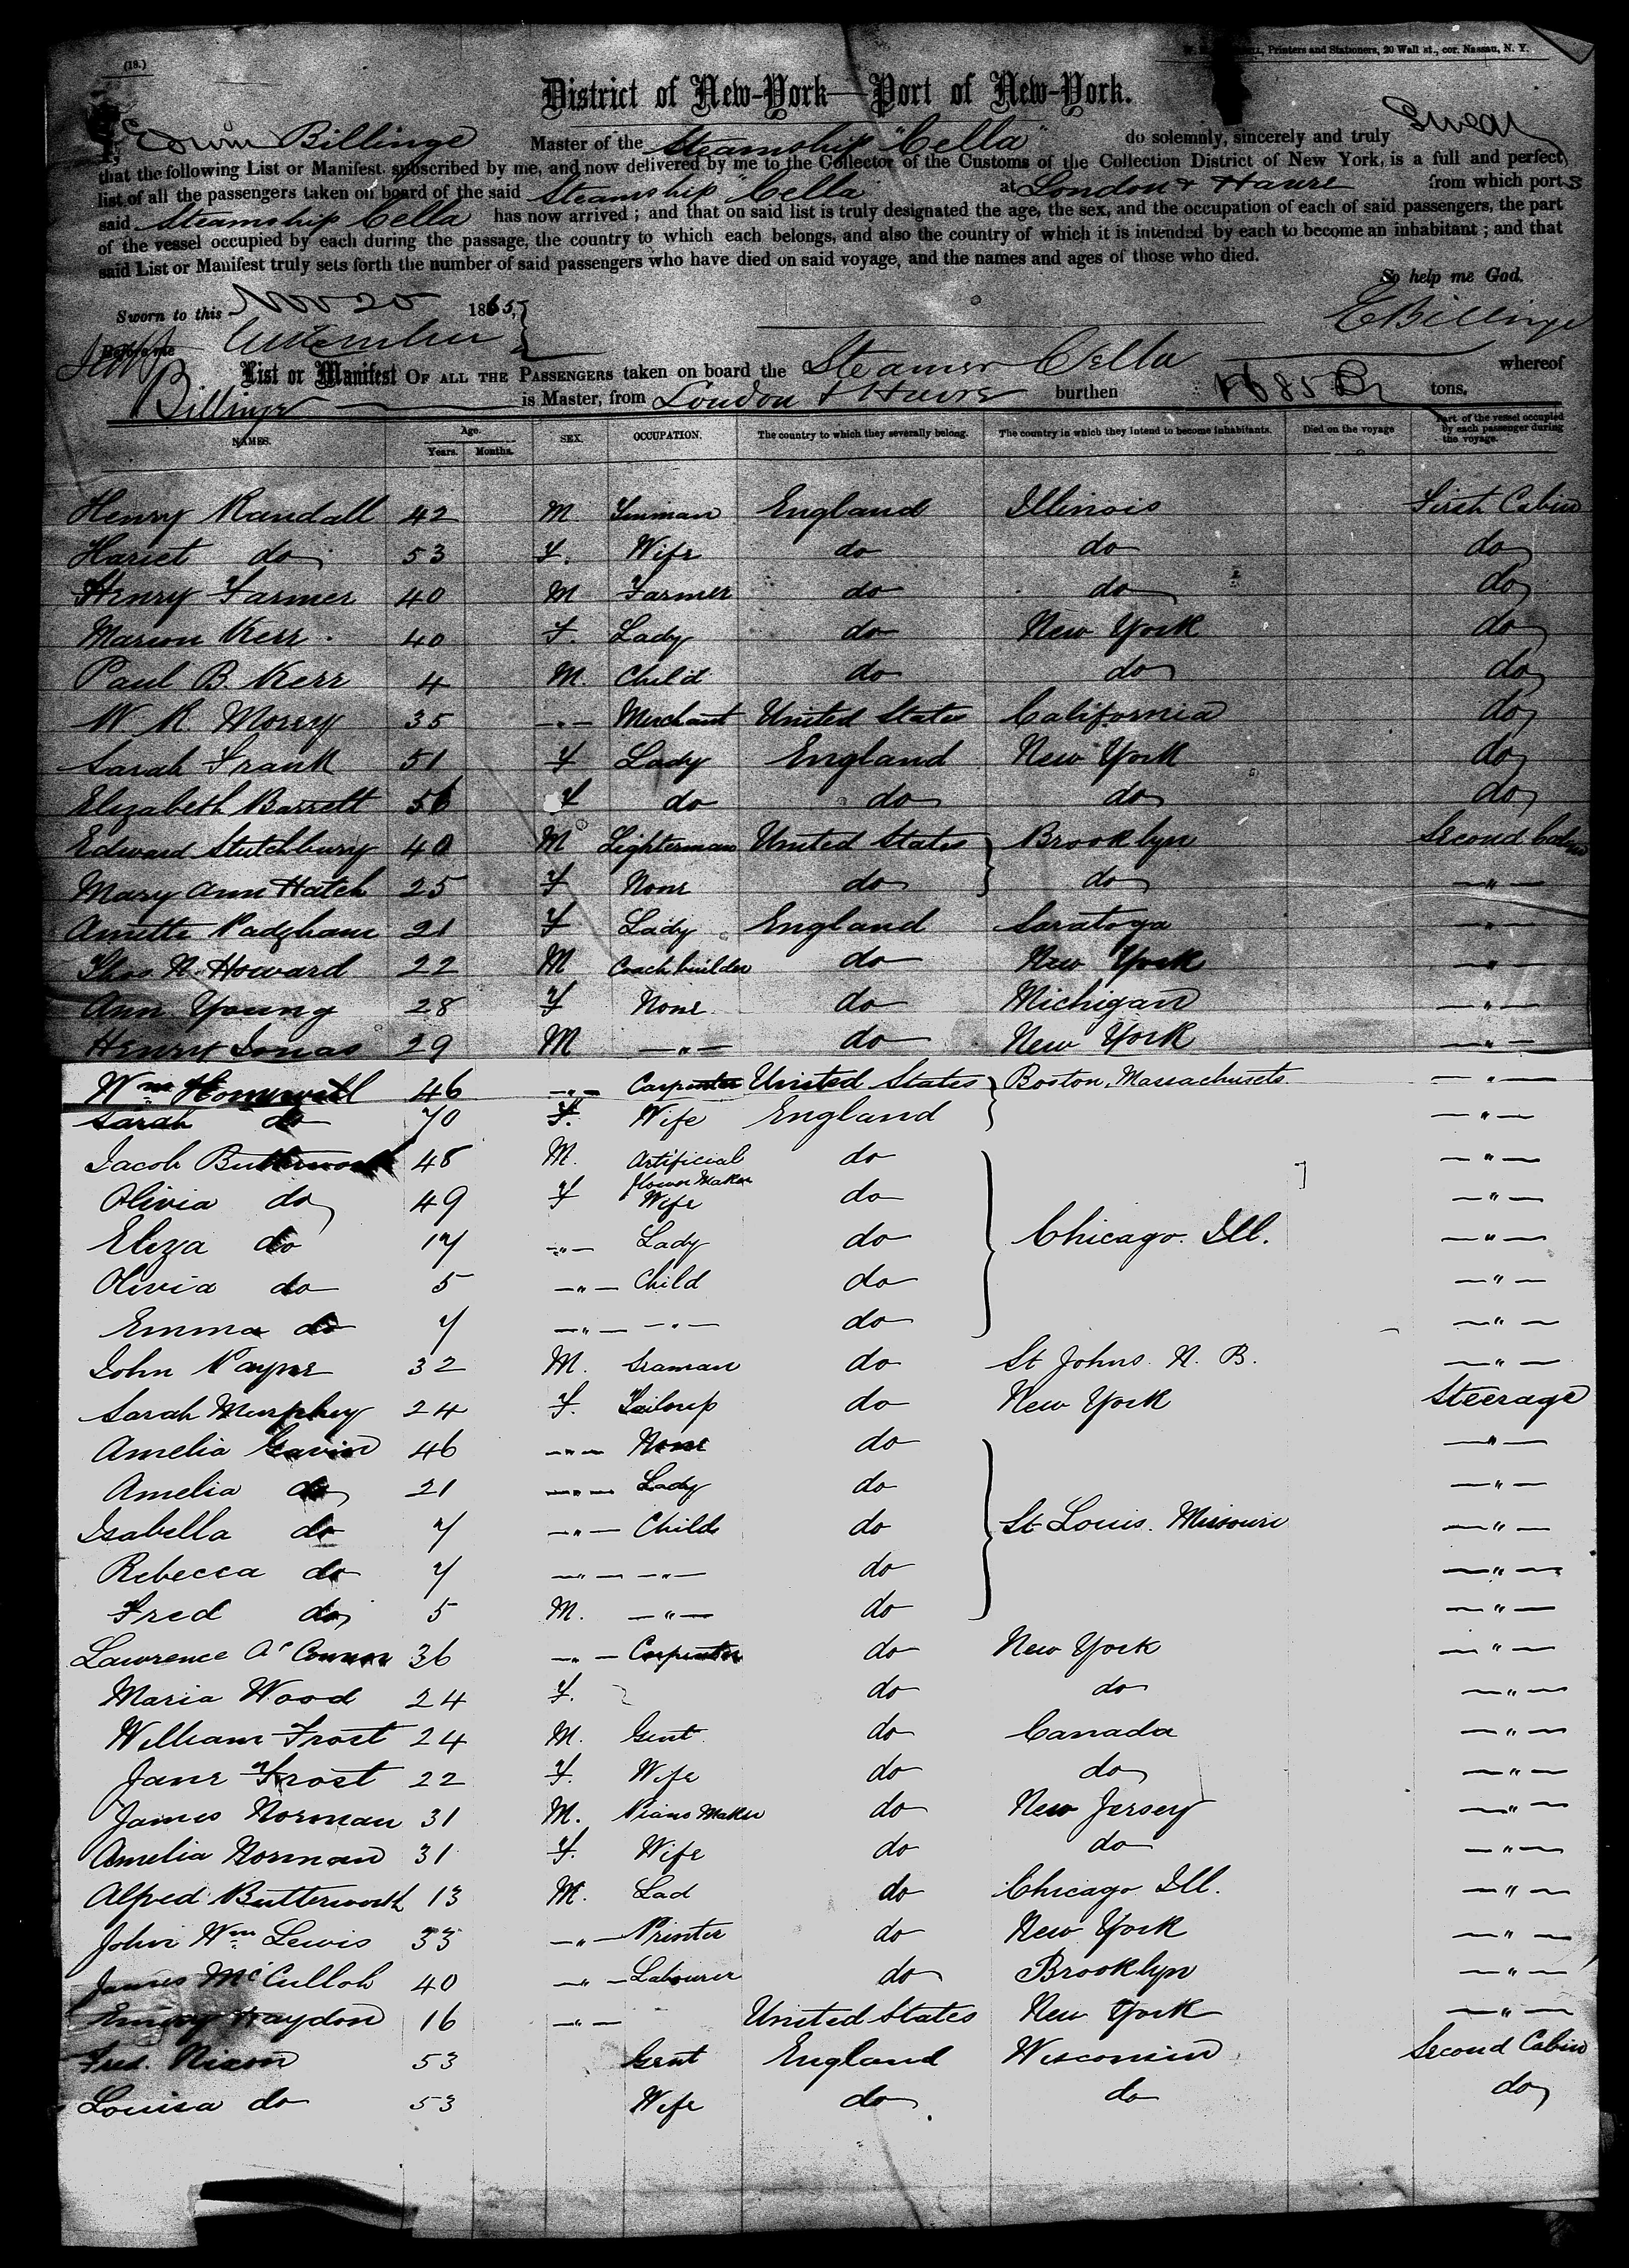 (18.)
Printers and Stationers, 20 Wall st., cor. Nassau, N. Y.
District of New-York—Port of New-York.
Edwin Billinge Master of the Steamship "Cella" do solemnly, sincerely and truly Swear
that the following List or Manifest, subscribed by me, and now delivered by me to the Collector of the Customs of the Collection District of New York, is a full and perfect
list of all the passengers taken on board of the said Steamship Cella at London & Havre from which ports
said Steamship Cella has now arrived; and that on said list is truly designated the age, the sex, and the occupation of each of said passengers, the part
of the vessel occupied by each during the passage, the country to which each belongs, and also the country of which it is intended by each to become an inhabitant; and that
said List or Manifest truly sets forth the number of said passengers who have died on said voyage, and the names and ages of those who died.
So help me God.
Sworn to this Nov 25 1865,
E Billinge
Before me
List or Manifest OF ALL THE PASSENGERS taken on board the Steamer Cella whereof
Billinge is Master, from London & Havre burthen tons.
NAMES. Age. Years. Months. SEX. OCCUPATION. The country to which they severally belong. The country in which they intend to become inhabitants. Died on the voyage Part of the vessel occupied by each passenger during the voyage.
Henry Randall 42 M England Illinois First Cabin
Hariet do 53 F. Wife do do do
Henry Farmer 40 M Farmer do do do
Marion Kerr. 40 F. Lady do New York do
Paul B. Kerr 4 M. Child do do do
W R. Morey 35 -"- Merchant United States California do
Sarah Frank 51 F Lady England New York do
Elizabeth Barrett 56 F do do do do
Edward Stutchbury 40 M Lighterman United States Brooklyn Second Cabin
Mary Ann Hatch 25 F None do do -"-
Annette Padgham 21 F Lady England Saratoga -"-
Thos N. Howard 22 M Coach builder do New York -"-
Ann Young 28 F None do Michigan -"-
Henry Jonas 29 M -"- do New York -"-
Wm 46 -"- Carpenter United States Boston, Massachusets -"-
Sarah do 70 F. Wife England -"-
Jacob Butterworth 48 M. Artificial flower Maker do -"-
Olivia do 49 F Wife do -"-
Eliza do 17 -"- Lady do Chicago. Ill. -"-
Olivia do 5 -"- Child do -"-
Emma do 7 -"- -"- do -"-
John Payne 32 M. Seaman do St Johns. N. B. -"-
Sarah Murphey 24 F. do New York Steerage
Amelia Gavin 46 -"- None do -"-
Amelia do 21 -"- Lady do -"-
Isabella do 7 -"- Childs do St Louis. Missouri -"-
Rebecca do 7 -"- -"- do -"-
Fred do 5 M. -"- do -"-
Lawrence O'Connor 36 -"- Carpenter do New York -"-
Maria Wood 24 F. do do -"-
William Frost 24 M. Gent do Canada -"-
Jane Frost 22 F. Wife do do -"-
James Norman 31 M. Piano Maker do New Jersey -"-
Amelia Norman 31 F. Wife do do -"-
Alfred Butterworth 13 M. Lad do Chicago Ill. -"-
John Wm Lewis 33 -"- Printer do New York -"-
James McCulloh 40 -"- Labourer do Brooklyn -"-
Haydon 16 -"- United States New York -"-
Fred. Nixon 53 Gent England Wisconsin Second Cabin
Louisa do 53 Wife do do do